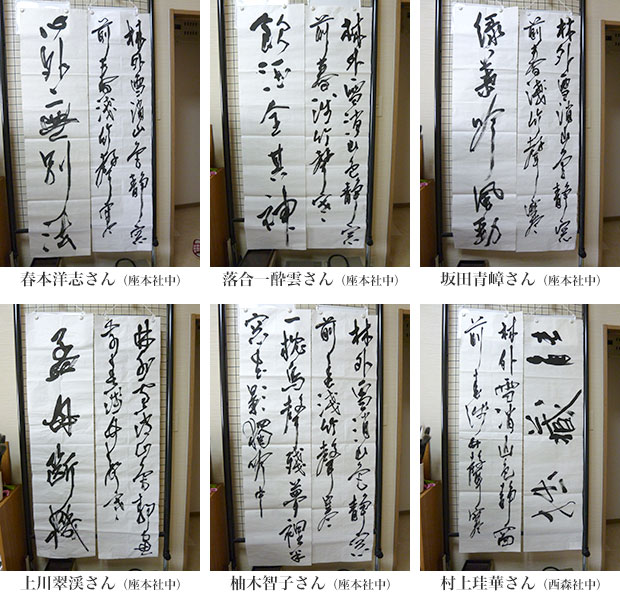 林外雪消山色静窓
前春浅竹聲寒
心外無別法
春本洋志さん（座本社中）
林外雪消山色静窓
前春浅竹聲寒
飲酒全其神
落合一酔雲さん（座本社中）
林外雪消山色静窓
前春浅竹聲寒
緑葉吟風勁
坂田青嶂さん（座本社中）
林外雪消山色静窓
前春浅竹聲寒
孟母断機
上川翠渓さん（座本社中）
林外雪消山色静窓
前春浅竹聲寒
一枕鳥聲残夢裡半
窓花影獨吟中
柚木智子さん（座本社中）
林外雪消山色静窓
前春浅竹聲寒
村上珪華さん（西森社中）